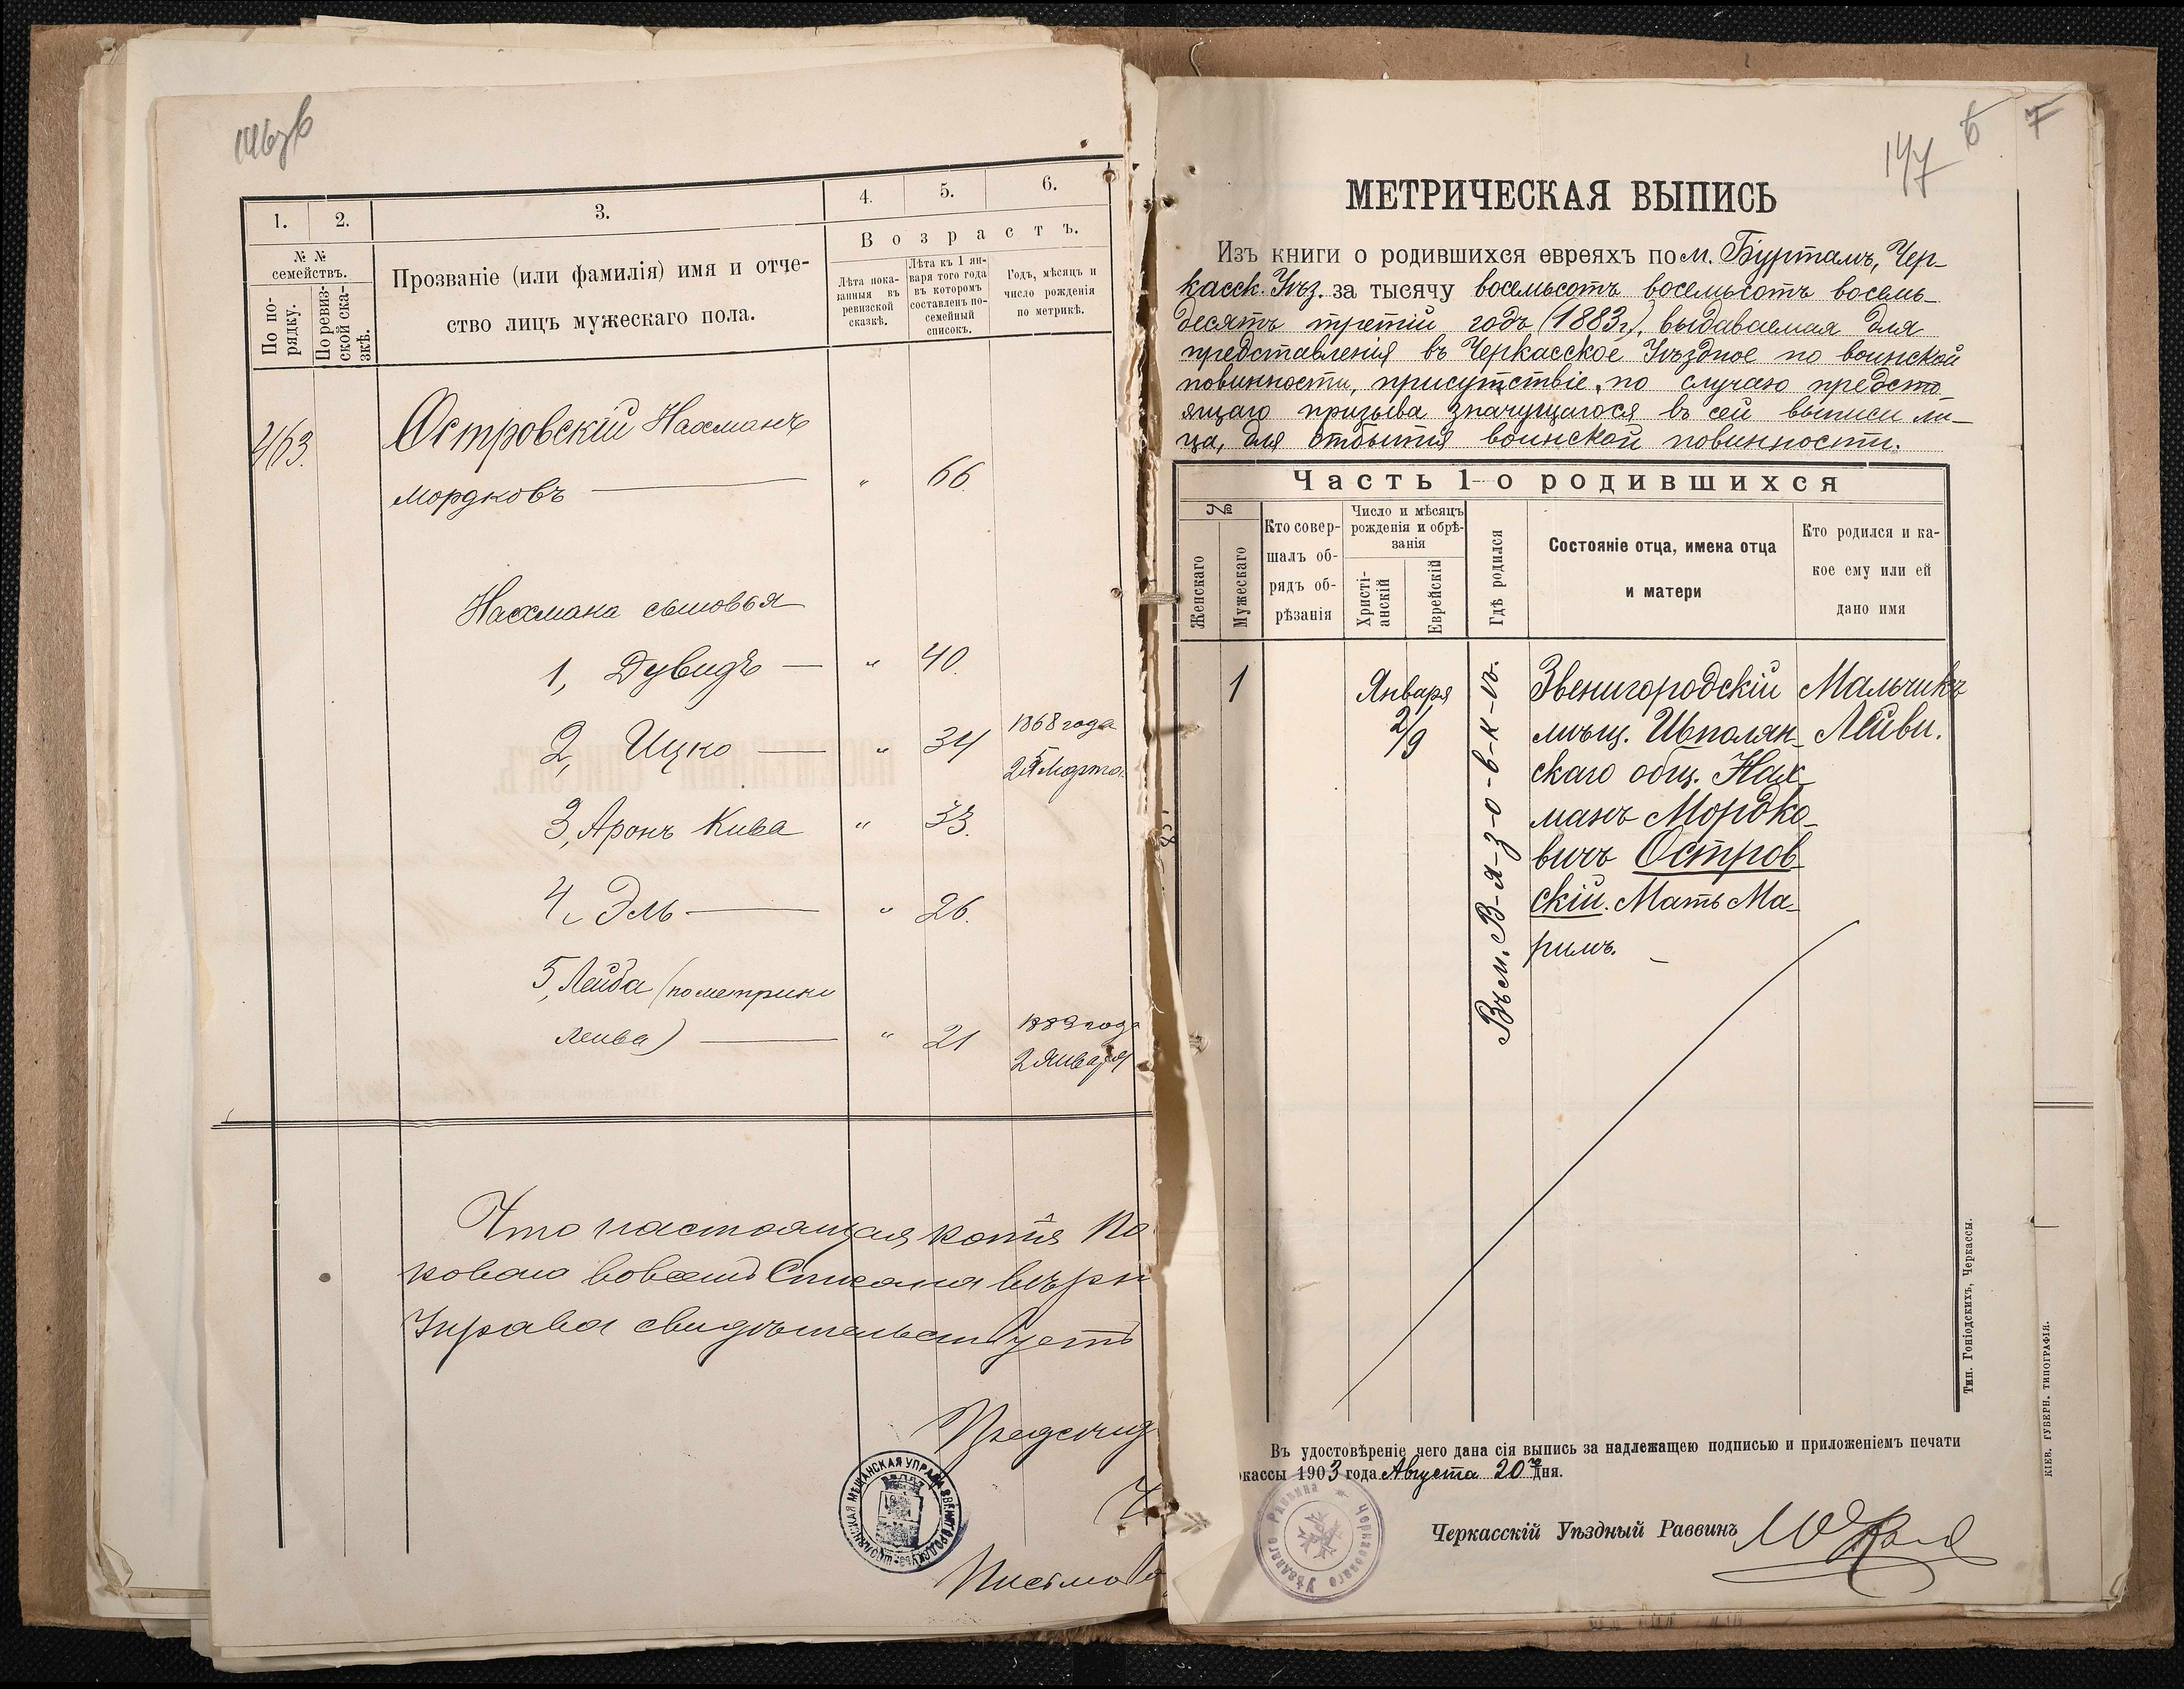 146об
1.
2.
3.
4.
5.
6.
№ №
семействъ.
По по-
рядку.
По ревиз-
ской ска-
зкѣ.
Прозваніе (или фамилія) имя и отче-
ство лицъ мужескаго пола.
Возрастъ.
Лѣта пока-
занныя въ
ревизской
сказкѣ.
Лѣта къ 1 ян-
варя того года
въ которомъ
составленъ по-
семейный
списокъ.
Годъ, мѣсяцъ и
число рожденія
по метрикѣ.
463.
Островскій Нахманъ
Мордковъ — " 66.
Нахмана сыновья
1, Дувидъ — " 40.
2, Ицко — " 34 1868 года
Марта
3, Аронъ Кива " 33.
4, Эль — " 26.
5, Лейба (по метрики
Лейва) — " 21 1883 года
2 Января
Что настоящая копія
Управа свидѣтельствуетъ
Председ
Письмо
147
6
7
МЕТРИЧЕСКАЯ ВЫПИСЬ
Изъ книги о родившихся евреяхъ по м. Буртамъ, Чер-
касск. Уѣз. за тысячу восемьсотъ восемьсотъ восемь-
десятъ третій годъ (1883 г.), выдаваемая для
представленія въ Черкасское Уѣздное по воинской
повинности, присутствіе, по случаю предсто-
ящаго призыва значущагося въ сей выписи ли-
ца, для отбытія воинской повинности.
Часть 1-о родившихся
№
Женскаго
Мужескаго
Кто совер-
шалъ об-
рядъ об-
рѣзанія
Число и мѣсяцъ
рожденія и обрѣ-
занія
Христі-
анскій
Еврейскій
Гдѣ родился
Состояніе отца, имена отца
и матери
Кто родился и ка-
кое ему или ей
дано имя
1
Января
2/9
Въ м. В-я-з-о-в-к-ѣ.
Звенигородскій
мѣщ. Шполян-
скаго общ. Нах-
манъ Мордко-
вичъ Остров-
скій. Мать Ма-
римъ.
Мальчикъ
Лейви.
Въ удостовѣреніе чего дана сія выпись за надлежащею подписью и приложеніемъ печати
кассы 1903 года Августа 20 дня.
Черкасскій Уѣздный Раввинъ
Черкасскаго Уѣзднаго Раввина
ШПОЛЯНСКАЯ МѢЩАНСКАЯ УПРАВА ЗВЕНИГОРОДСК. УѢЗ.
Тип. Гоніодскихъ, Черкассы.
КІЕВ. ГУБЕРН. ТИПОГРАФІЯ.